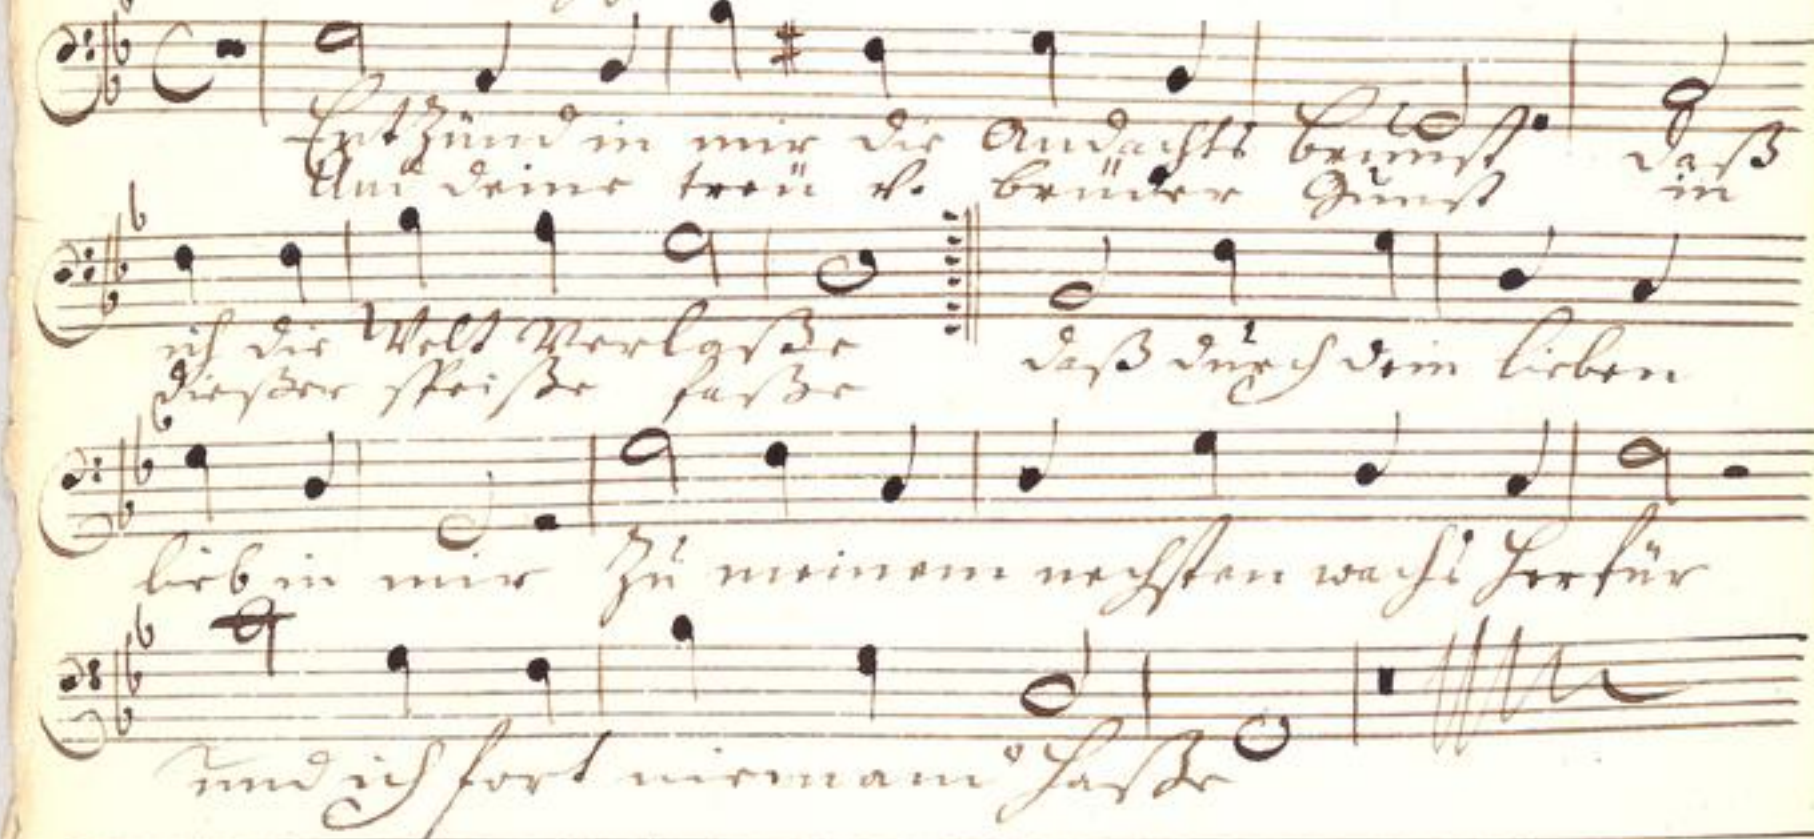 Entzünd in mir die Andachts brunst daß
Und deine treü v. brüder Gunst in
ich die Welt Verlaße
dießer speiße faße
daß durch dein lieben
lieb in mir Zu meinem nechsten wachs herfür
und ich fort niemand haße